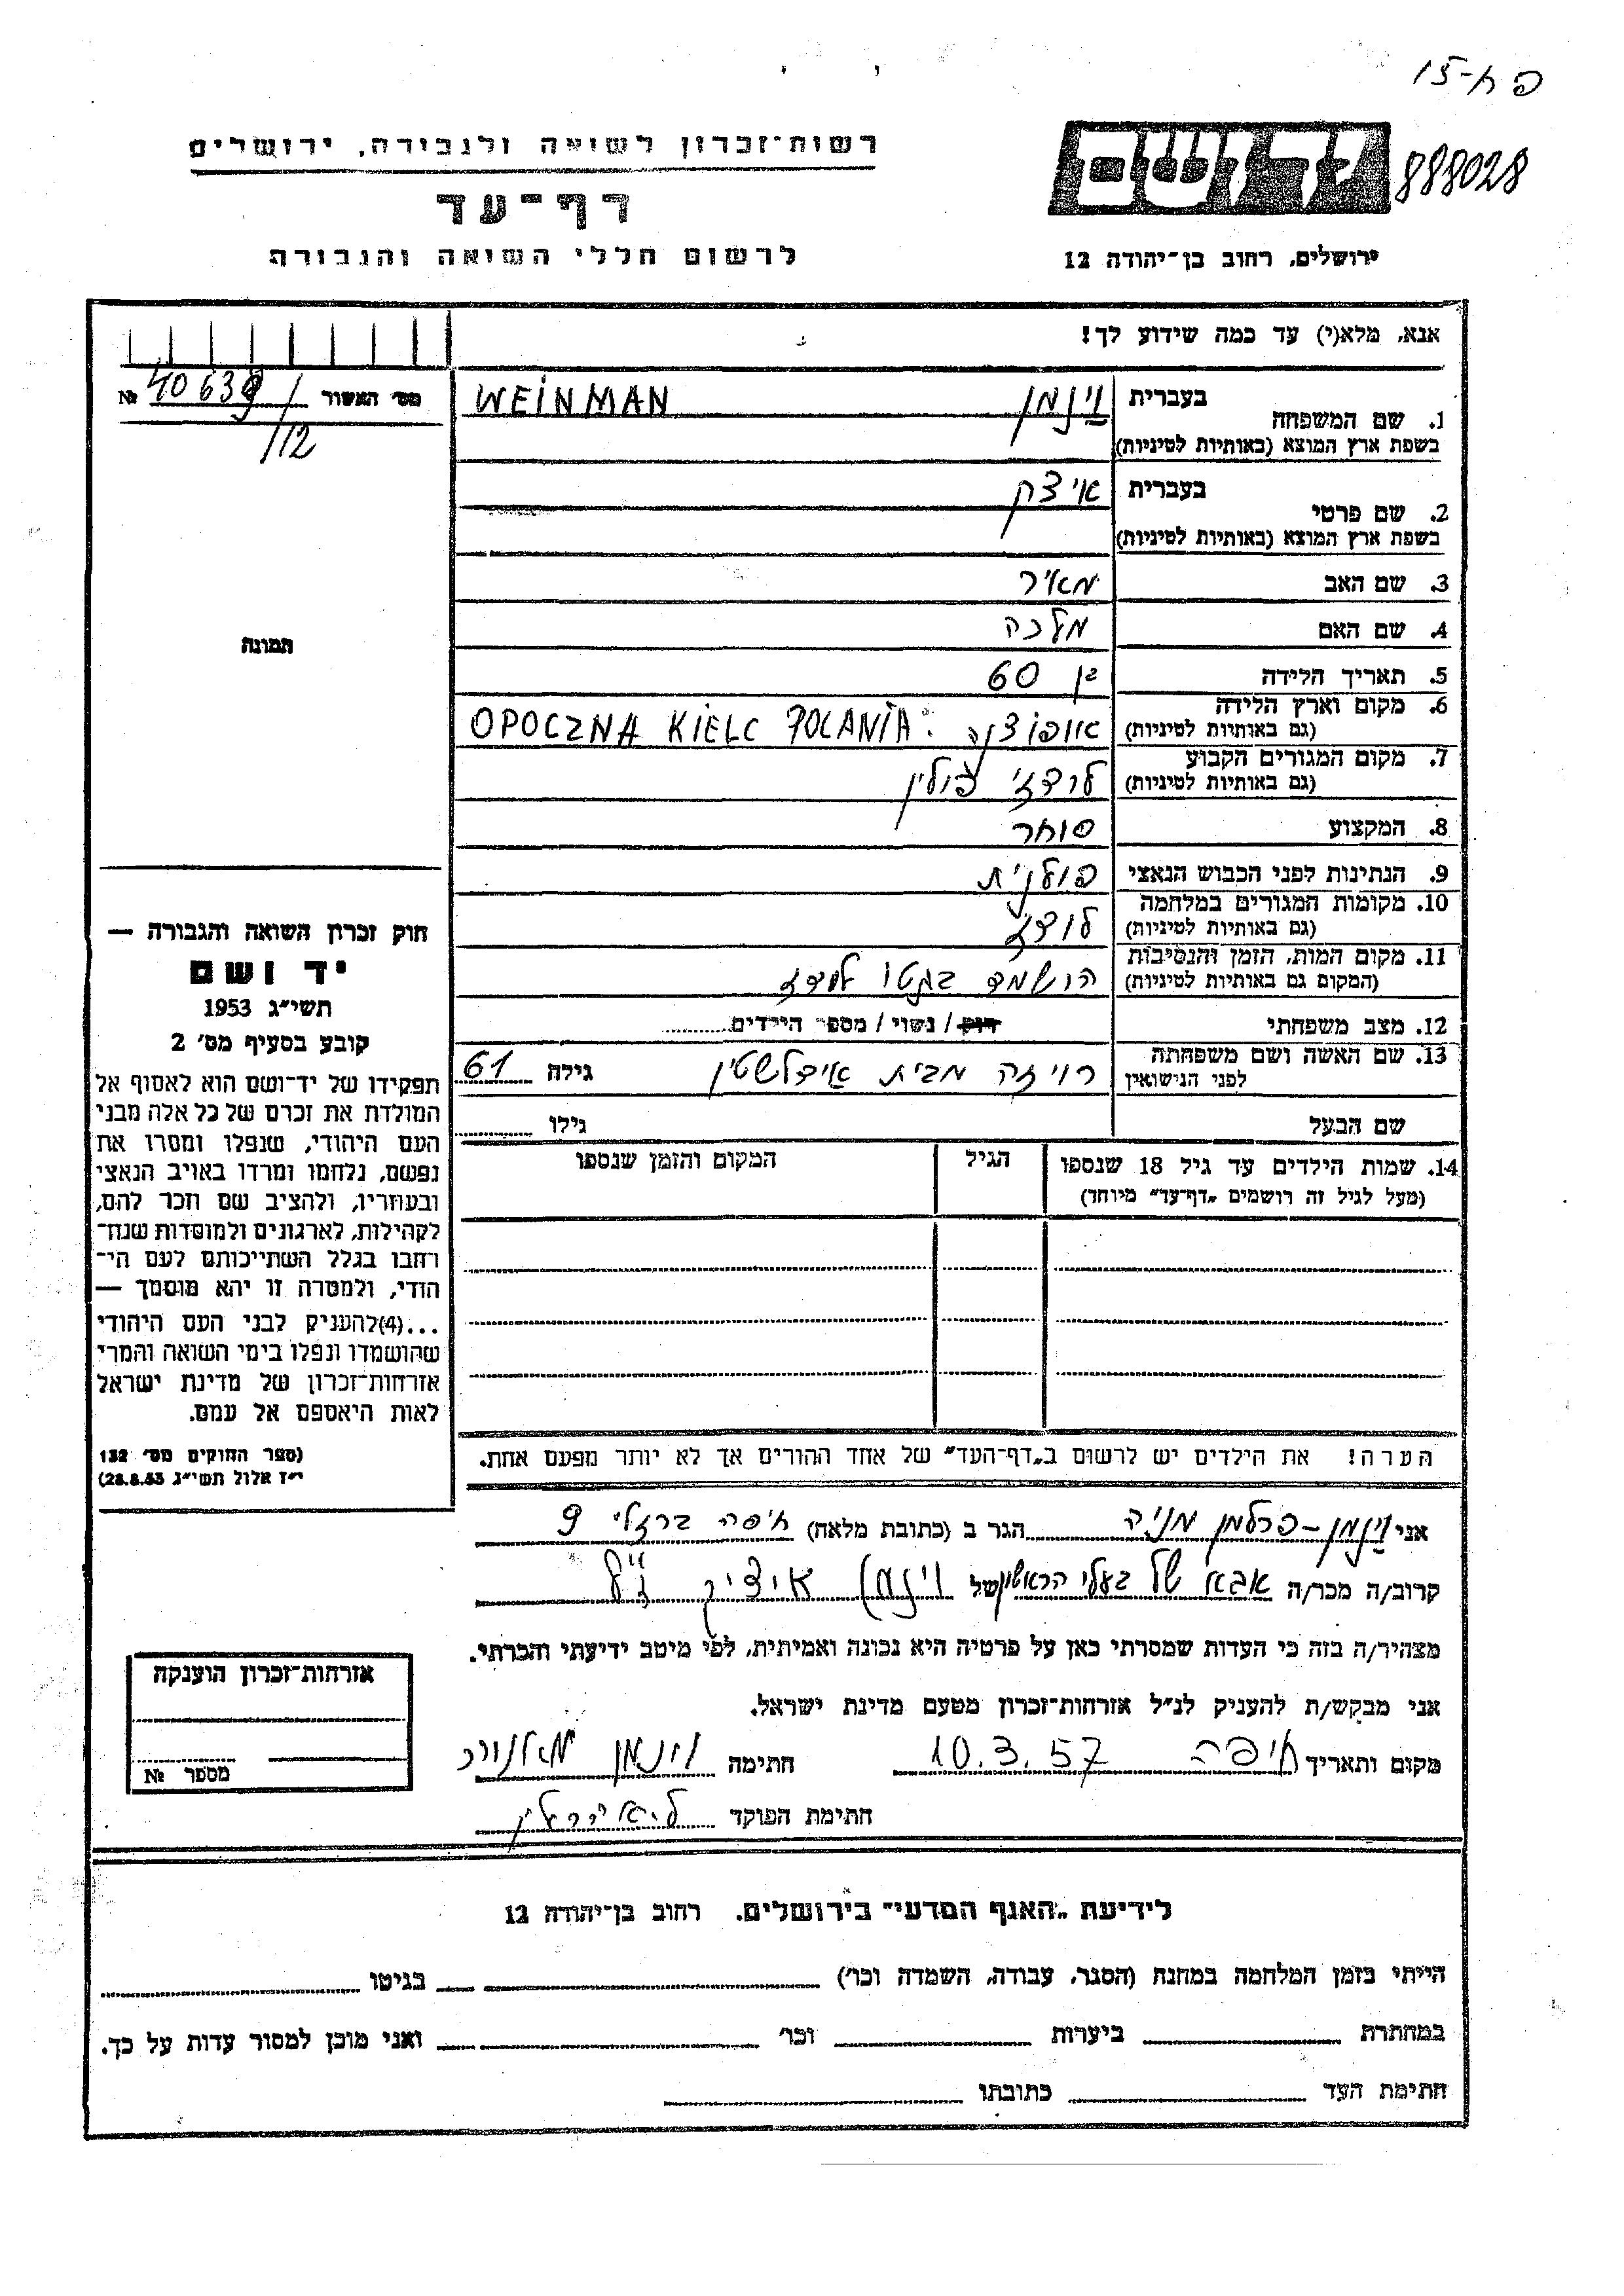 פח-15
888028
רשות-זכרון לשואה ולגבורה, ירושלים
דף-עד
לרשום חללי השואה והגבורה
ירושלים, רחוב בן-יהודה 12
אנא, מלא(י) עד כמה שידוע לך!
מס' האשור № 40639/
/12
1. שם המשפחה בעברית וינמן WEINMAN
בשפת ארץ המוצא (באותיות לטיניות)
2. שם פרטי בעברית איצק
בשפת ארץ המוצא (באותיות לטיניות)
3. שם האב מאיר
4. שם האם מלכה
5. תאריך הלידה בן 60
6. מקום וארץ הלידה (גם באותיות לטיניות) אופוצנה OPOCZNA KIELC POLANIA
7. מקום המגורים הקבוע (גם באותיות לטיניות) לודז' פולין
8. המקצוע סוחר
9. הנתינות לפני הכבוש הנאצי פולנית
10. מקומות המגורים במלחמה (גם באותיות לטיניות) לודז
11. מקום המות, הזמן והנסיבות (המקום גם באותיות לטיניות) הושמד בגטו לודז
12. מצב משפחתי רווק / נשוי / מספר הילדים
13. שם האשה ושם משפחתה לפני הנישואין רויזה מבית אידלשטין גילה 61
שם הבעל גילו
14. שמות הילדים עד גיל 18 שנספו הגיל המקום והזמן שנספו
(מעל לגיל זה רושמים "דף-עד" מיוחד)
הערה! את הילדים יש לרשום ב"דף-העד" של אחד ההורים אך לא יותר מפעם אחת.
תמונה
חוק זכרון השואה והגבורה —
יד ושם
תשי"ג 1953
קובע בסעיף מס' 2
תפקידו של יד-ושם הוא לאסוף אל
המולדת את זכרם של כל אלה מבני
העם היהודי, שנפלו ומסרו את
נפשם, נלחמו ומרדו באויב הנאצי
ובעוזריו, ולהציב שם וזכר להם,
לקהילות, לארגונים ולמוסדות שנח-
רחבו בגלל השתייכותם לעם הי-
הודי, ולמטרה זו יהא מוסמך —
...(4)להעניק לבני העם היהודי
שהושמדו ונפלו בימי השואה והמרי
אזרחות-זכרון של מדינת ישראל
לאות היאספם אל עמם.
(ספר החוקים מס' 132
י"ז אלול תשי"ג 28.8.53)
אני וינמן-פרלמן מניה הגר ב (כתובת מלאה) חיפה ברזלי 9
קרוב/ה מכר/ה אבא של בעלי הראשון של וינמן איציק ז"ל
מצהיר/ה בזה כי העדות שמסרתי כאן על פרטיה היא נכונה ואמיתית, לפי מיטב ידיעתי והכרתי.
אני מבקש/ת להעניק לנ"ל אזרחות-זכרון מטעם מדינת ישראל.
מקום ותאריך חיפה 10.3.57 חתימה וינמן
חתימת הפוקד
אזרחות-זכרון הוענקה
מספר №
לידיעת "האגף המדעי" בירושלים, רחוב בן-יהודה 12
הייתי בזמן המלחמה במחנה (הסגר, עבודה, השמדה וכו') בגיטו
במחתרת ביערות וכו' ואני מוכן למסור עדות על כך.
חתימת העד כתובתו